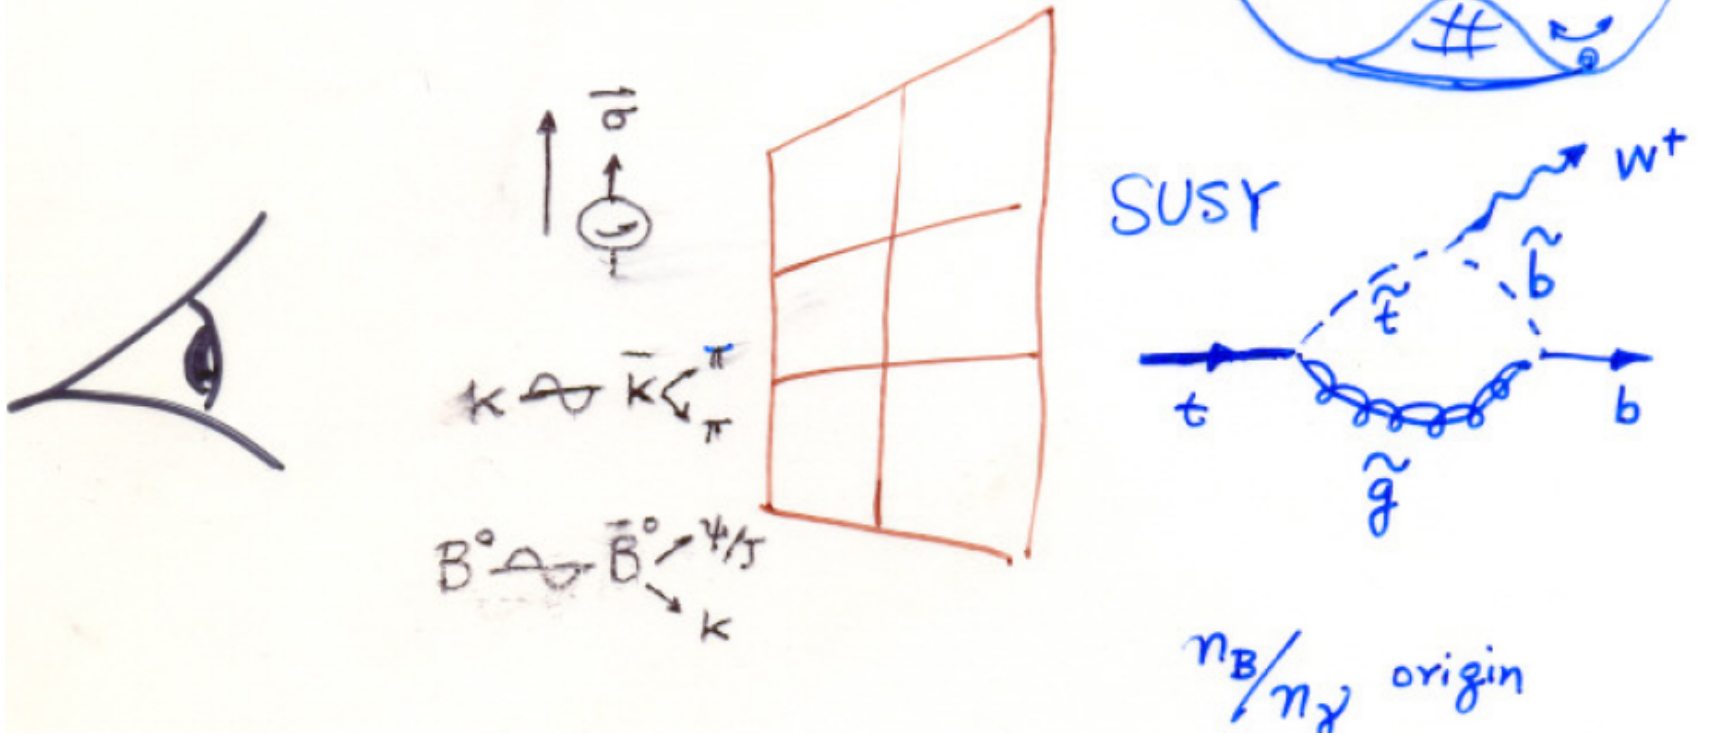 σ⃗
K K̄ π
π
B° B̄° Ψ/J
K
#
SUSY
W+
t̃ b̃
t b
g̃
nB/nγ origin